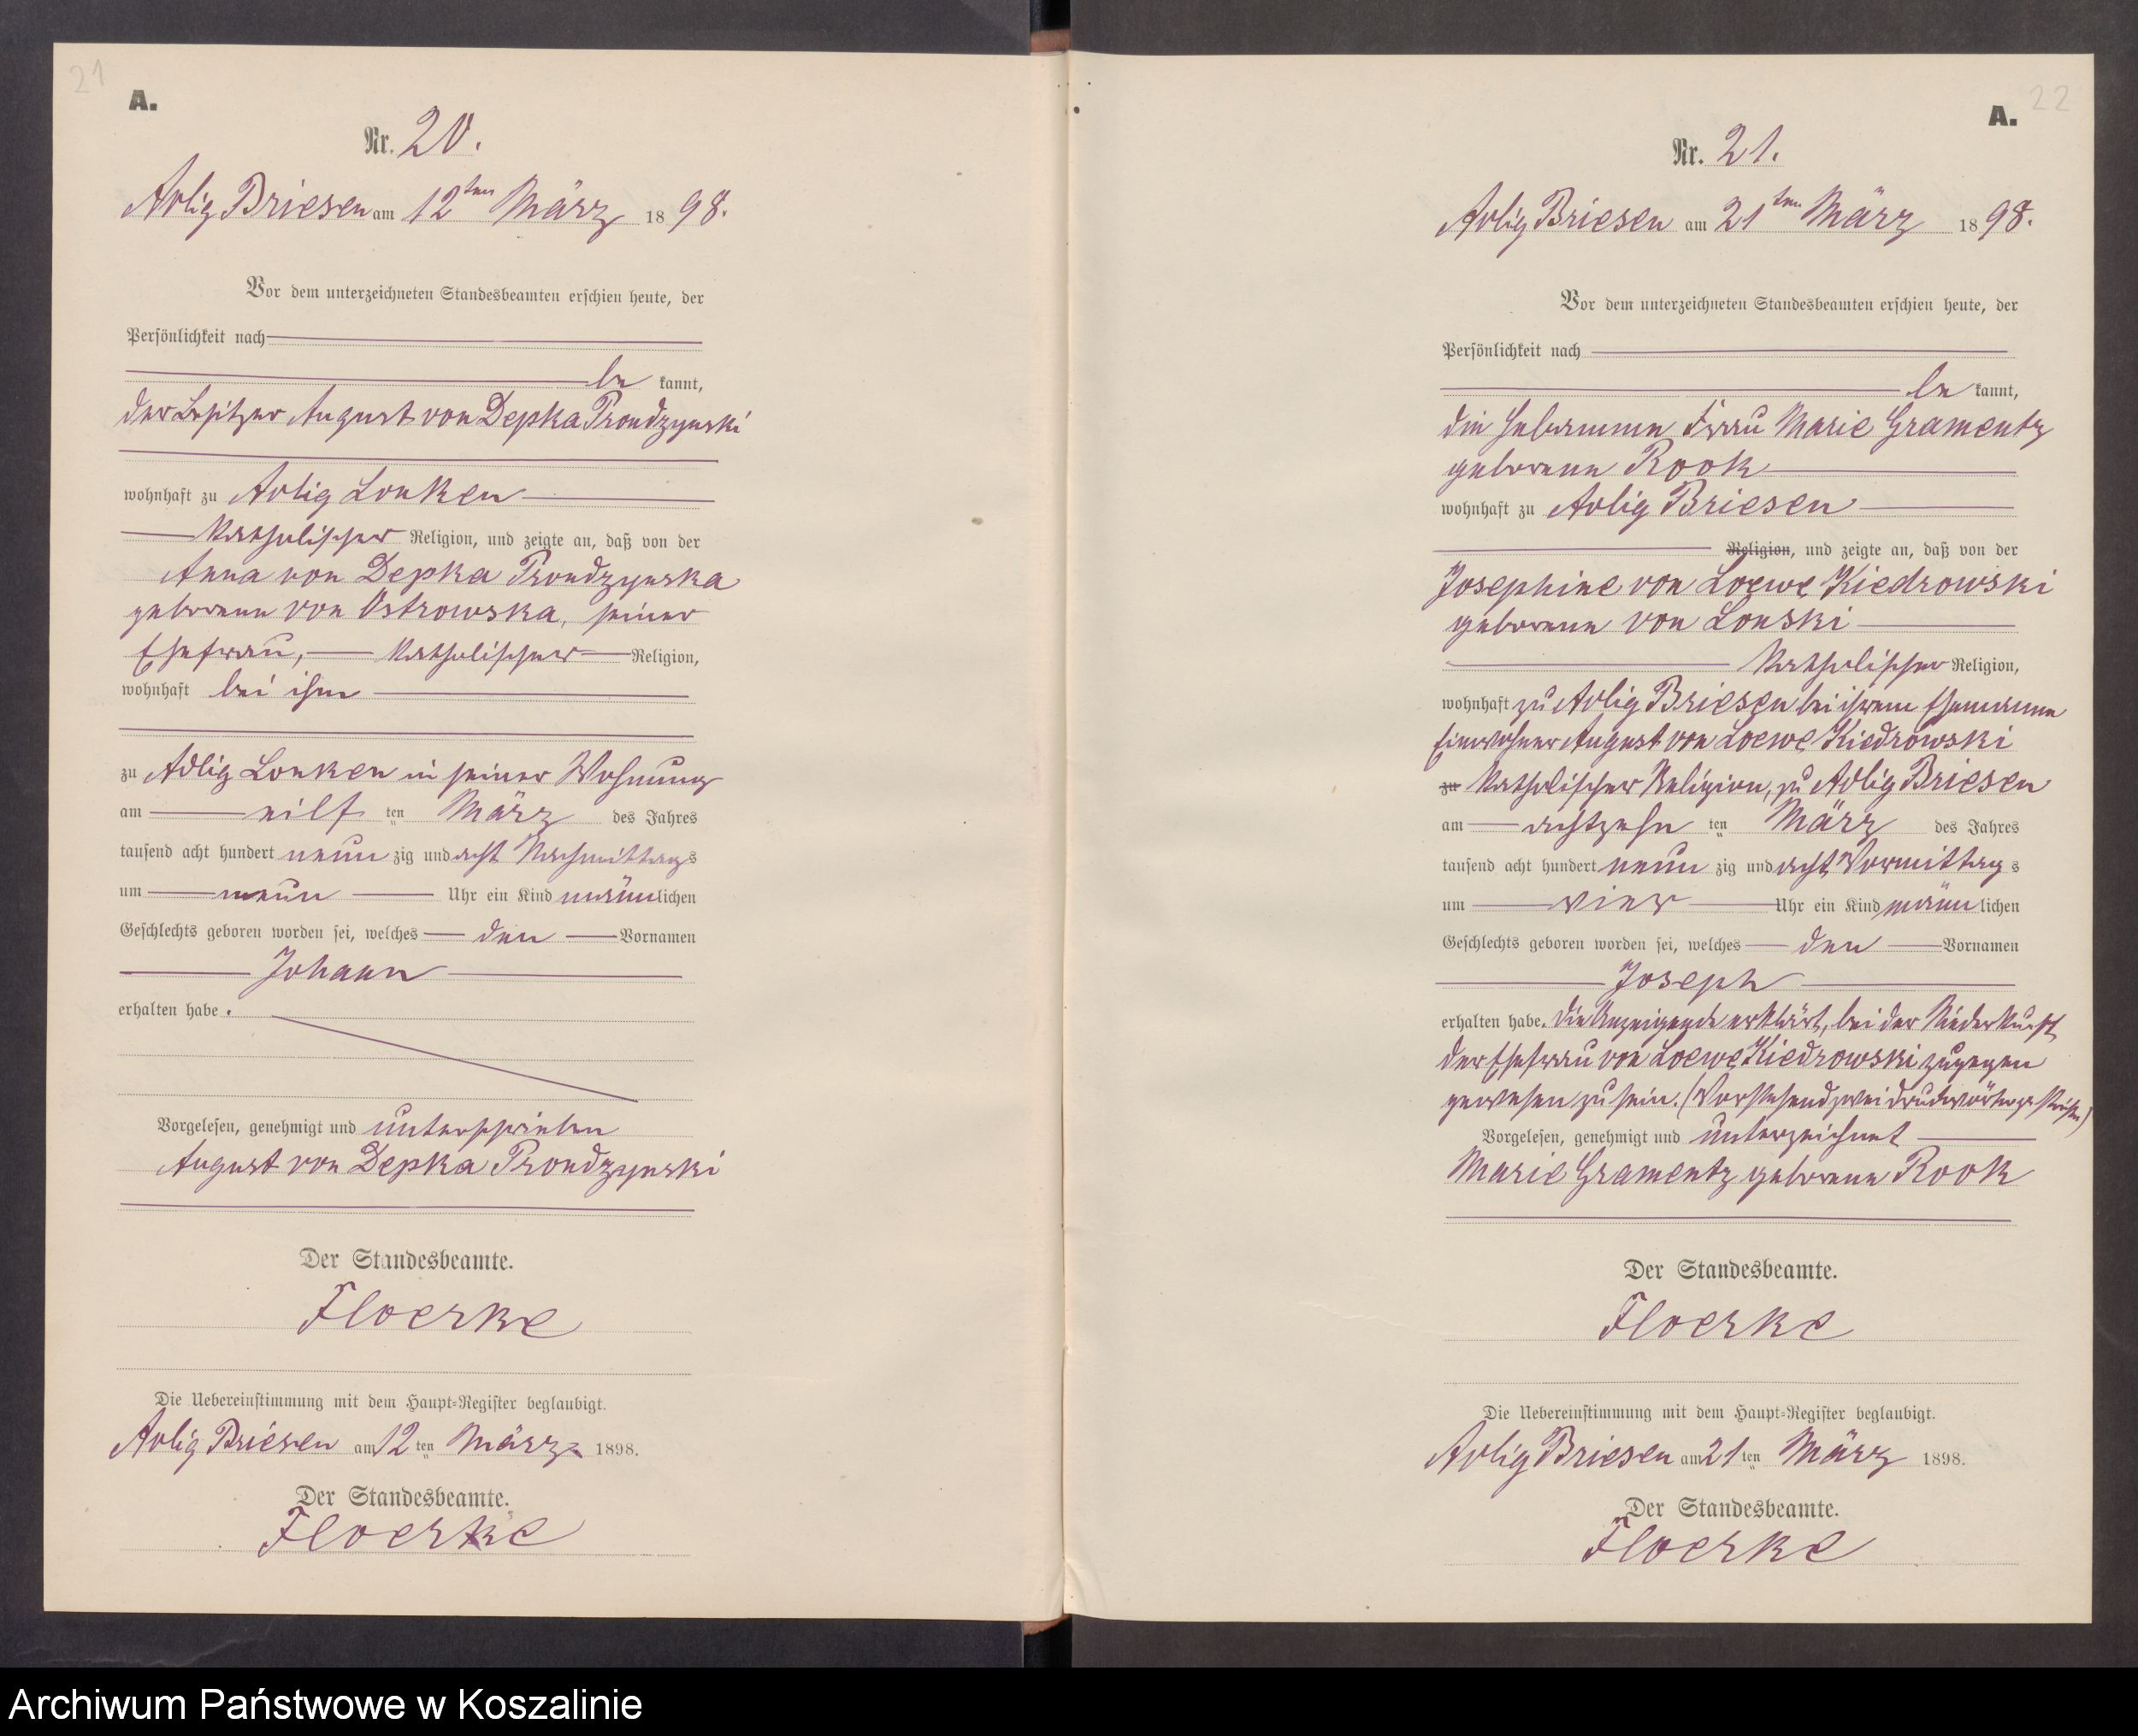 21
A.
Nr. 20.
Adlig Briesen am 12ten März 1898.
Vor dem unterzeichneten Standesbeamten erschien heute, der
Persönlichkeit nach
be kannt,
der Besitzer August von Depka Prondzynski
wohnhaft zu Adlig Lonken
katholischer Religion, und zeigte an, daß von der
Anna von Depka Prondzynska
geborene von Ostrowska, seiner
Ehefrau, katholischer Religion,
wohnhaft bei ihm
zu Adlig Lonken in seiner Wohnung
am eilf ten März des Jahres
tausend acht hundert neun zig und acht Nachmittags
um neun Uhr ein Kind männlichen
Geschlechts geboren worden sei, welches den Vornamen
Johann
erhalten habe.
Vorgelesen, genehmigt und unterschrieben
August von Depka Prondzynski
Der Standesbeamte.
Floerke
Die Uebereinstimmung mit dem Haupt-Register beglaubigt.
Adlig Briesen am 12ten März 1898.
Der Standesbeamte.
Floerke
22
A.
Nr. 21.
Adlig Briesen am 21ten März 1898.
Vor dem unterzeichneten Standesbeamten erschien heute, der
Persönlichkeit nach
be kannt,
die Hebamme Frau Marie Gramentz
geborene Rook
wohnhaft zu Adlig Briesen
Religion, und zeigte an, daß von der
Josephine von Loewe Kiedrowski
geborene von Lonski
katholischer Religion,
wohnhaft zu Adlig Briesen bei ihrem Ehemanne
Einwohner August von Loewe Kiedrowski
zu katholischer Religion, zu Adlig Briesen
am achtzehn ten März des Jahres
tausend acht hundert neun zig und acht Vormittags
um vier Uhr ein Kind männlichen
Geschlechts geboren worden sei, welches den Vornamen
Joseph
erhalten habe. Die Anzeigende erklärt, bei der Niederkunft
der Ehefrau von Loewe Kiedrowski zugegen
gewesen zu sein. (Vorstehend zwei Druckwörter gestrichen)
Vorgelesen, genehmigt und unterzeichnet
Marie Gramentz geborene Rook
Der Standesbeamte.
Floerke
Die Uebereinstimmung mit dem Haupt-Register beglaubigt.
Adlig Briesen am 21ten März 1898.
Der Standesbeamte.
Floerke
Archiwum Państwowe w Koszalinie